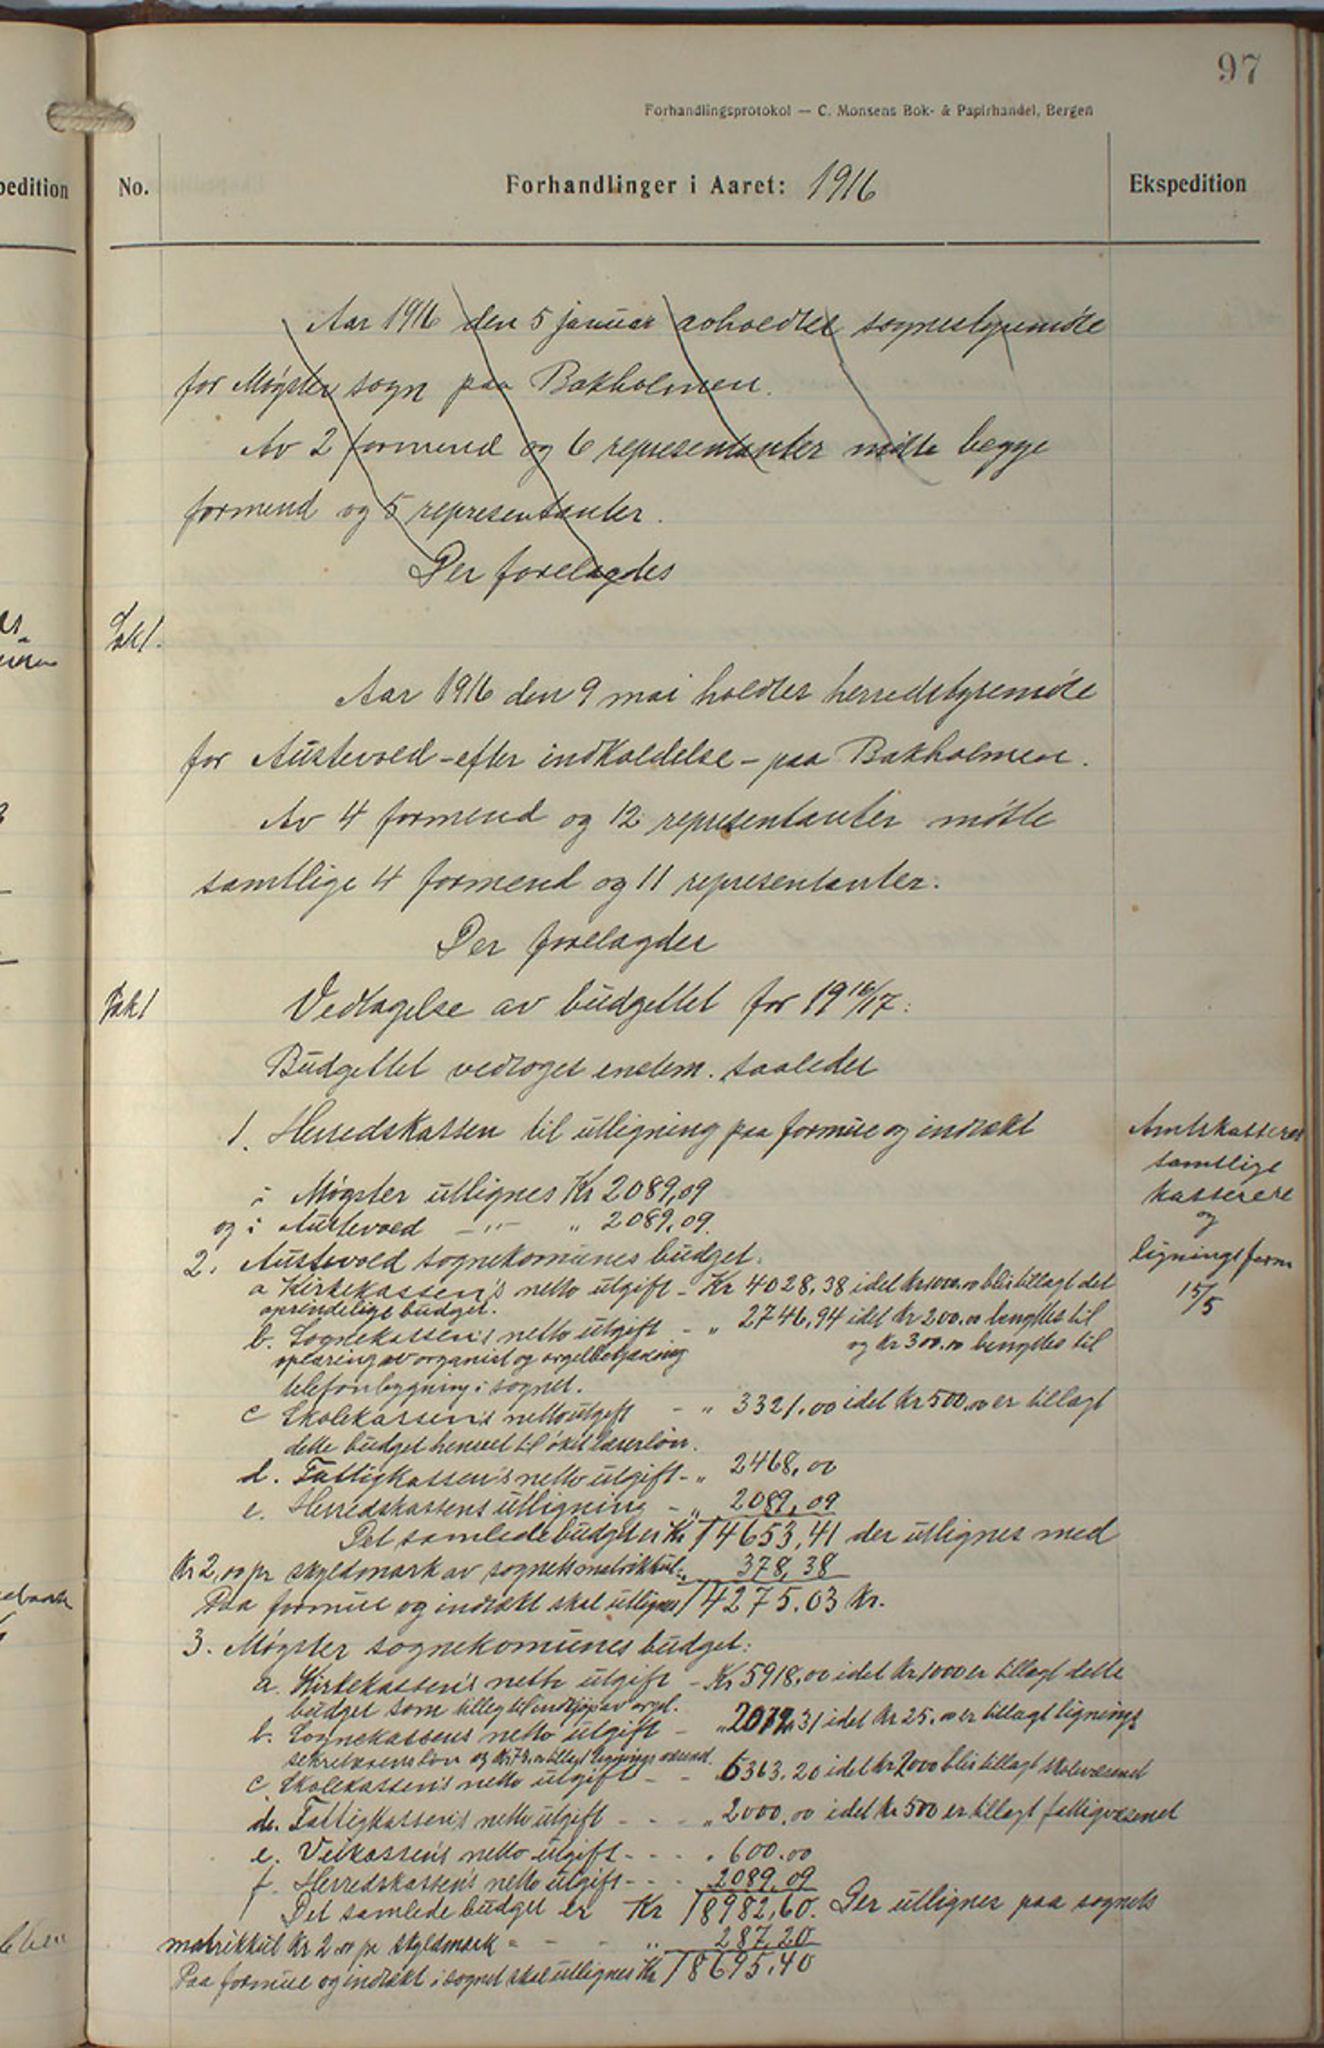 97
Forhandlingsprotokol — C. Monsens Bok- & Papirhandel, Bergen
pedition
No.
Forhandlinger i Aaret: 1916
Ekspedition
Aar 1916 den 5 januar avholdtes sognestyremøte
for Møgster sogn paa Bakholmen.
Av 2 formend og 6 representanter møtte begge
formend og 5 representanter.
Der forelagdes
Sak 1.
Aar 1916 den 9 mai holdtes herredstyremøte
for Austevold - efter indkaldelse - paa Bakholmen.
Av 4 formend og 12 representanter møtte
samtlige 4 formend og 11 representanter.
Der forelagdes
Sak 1
Vedtagelse av budgettet for 1916/17:
Budgettet vedtoges enstem. saaledes
1. Herredskassen til utligning paa formue og indtækt
i Møgster utlignes Kr 2089,09
og i Austevold -"- " 2089,09.
Amtskasserer
samtlige
kasserere
og
ligningsform
15/5
2. Austevold sognekomunes budget.
a Kirkekassen's netto utgift - Kr 4028,38 idet kr 1000.00 blir tillagt det
oprindelige budget.
b. Sognekassen's netto utgift - " 2746,94 idet kr 200.00 benyttes til
oplæring av organist og orgelbetjening og kr 300.00 benyttes til
telefonbygning i sognet.
c Skolekassen's netto utgift - " 3321.00 idet kr 500.00 er tillagt
dette budget henset til økit lærerløn.
d. Fattigkassen's netto utgift - " 2468,00
e. Herredskassens utligning - " 2089,09
Det samlede budget er Kr 14653,41 der utlignes med
Kr 2,00 pr skyldmark av sognets matrikkul - " 378,38
Paa formue og indtækt skal utlignes 14275.03 Kr.
3. Møgster sognekomunes budget:
a. Kirkekassen's netto utgift - Kr 5918,00 idet kr 1000 er tillagt dette
budget som tilleg til indkjøp av orgel.
b. Sognekassens netto utgift - " 2012,31 idet kr 25.00 er tillagt lignings
sekretærens løn og kr 73.00 tillagt lignings
c. Skolekassen's netto utgift - - 6363.20 idet kr 2000 blir tillagt skolevæsenet
d. Fattigkassen's netto utgift - - - " 2000.00 idet kr 500 er tillagt fattigvæsenet
e. Veikassen's netto utgift - - - " 600.00
f. Herredskassen's netto utgift - - - 2089,09
Det samlede budget er Kr 18982,60. Der utlignes paa sognets
matrikkul kr 2.00 pr skyldmark - - - " 287,20
Paa formue og indtækt i sognet skal utlignes Kr 18695,40